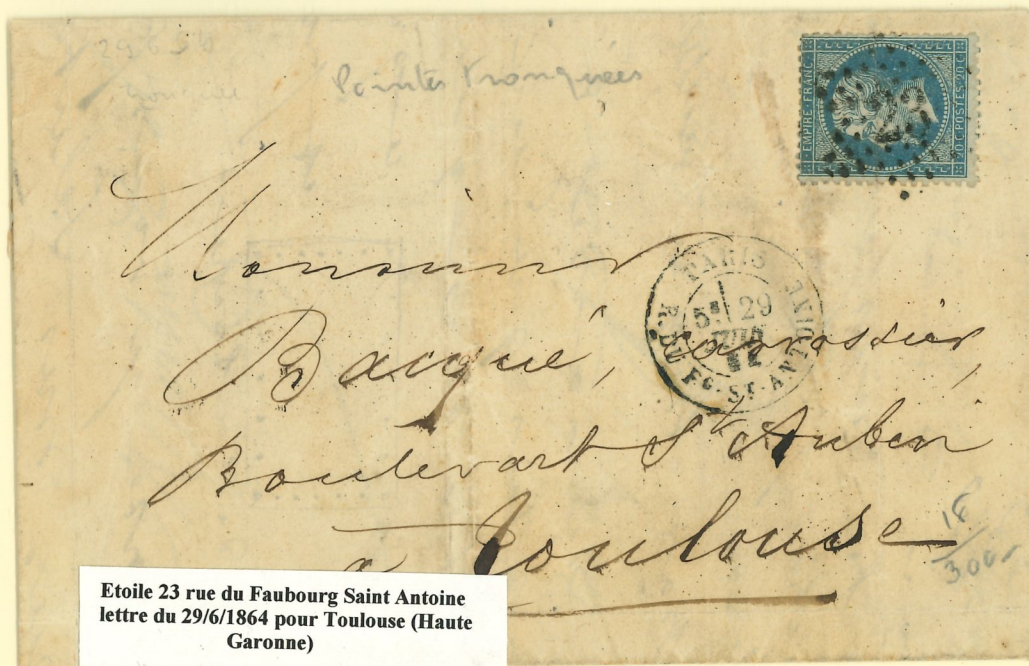 29 6 64
Pointes tronquées
EMPIRE · FRANC.
20 C · POSTES · 20 C
23
PARIS
R. DU FG. ST. ANTOINE
5E 29
Monsieur
Bacqué, carrossier,
Boulevart St Aubin
à Toulouse
18
300
Etoile 23 rue du Faubourg Saint Antoine
lettre du 29/6/1864 pour Toulouse (Haute
Garonne)